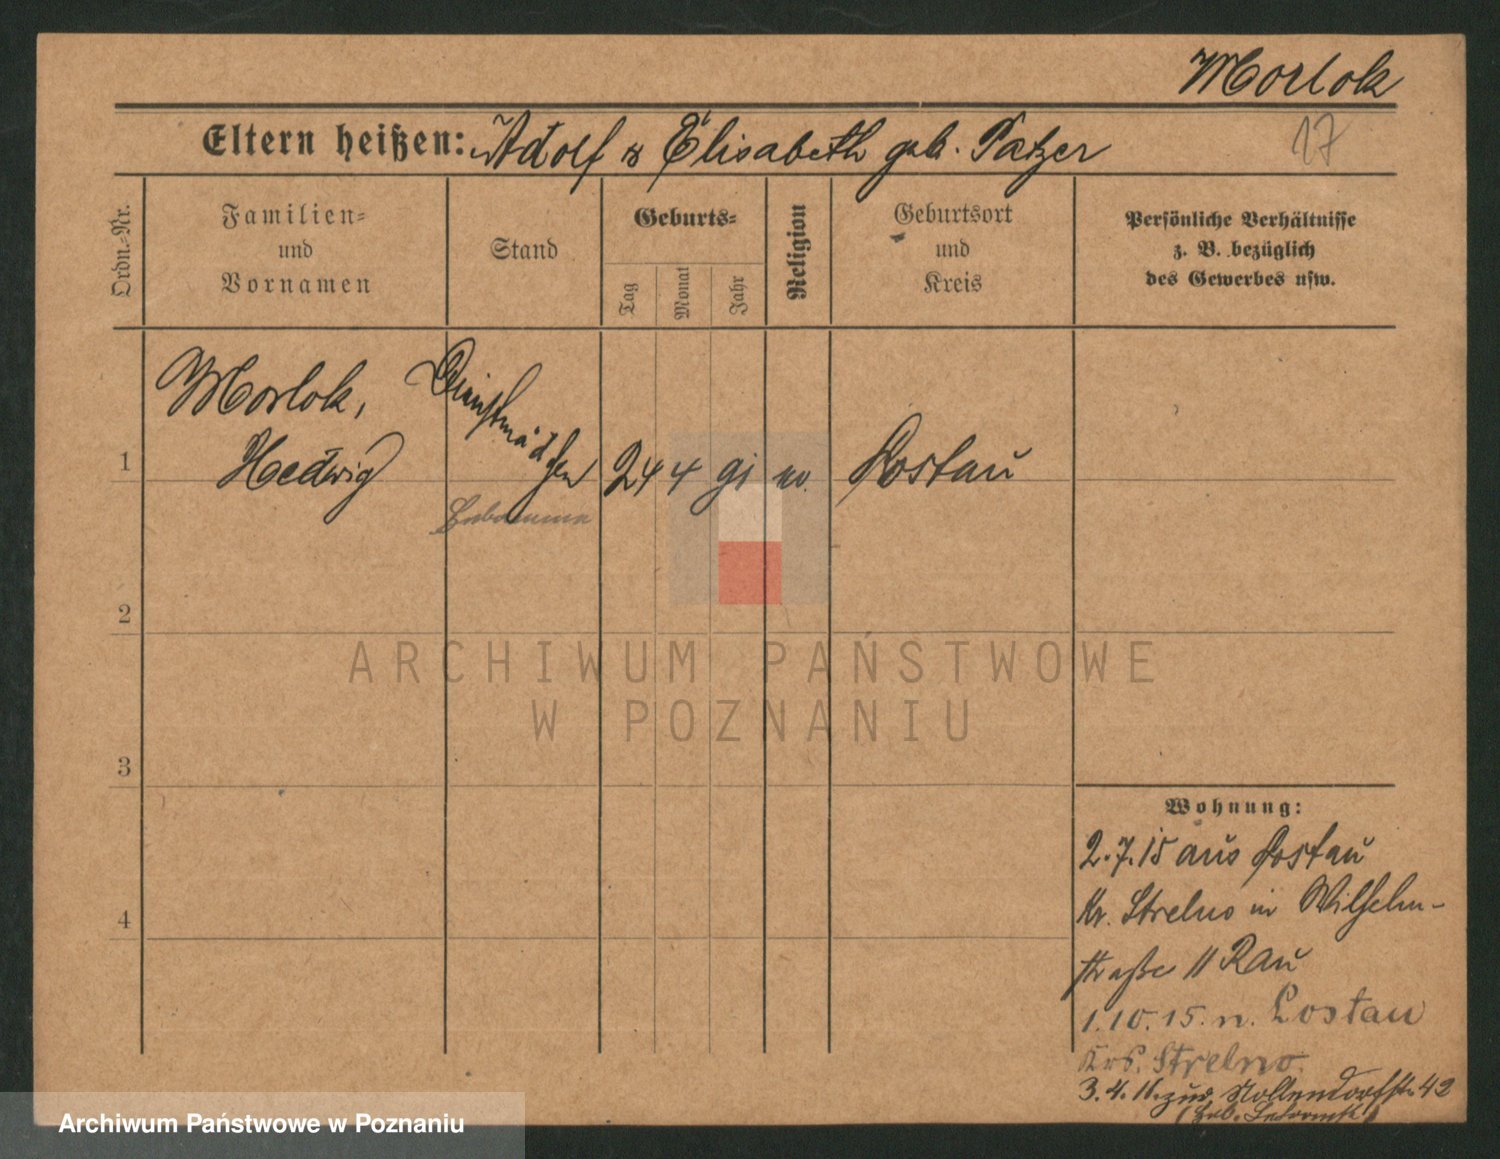 Morlok
Eltern heißen: Adolf u Elisabeth geb. Patzer
17
Ordn.-Nr.
Familien-
und
Vornamen
Stand
Geburts-
Tag
Monat
Jahr
Religion
Geburtsort
und
Kreis
Persönliche Verhältnisse
z. B. bezüglich
des Gewerbes usw.
1
Morlok,
Hedwig
Dienstmädchen
24 4 91 ev. Lostau
Hebamme
2
ARCHIWUM PAŃSTWOWE
W POZNANIU
3
4
Wohnung:
2.7.15 aus Lostau
Kr. Strelno in Wilhelm-
straße 11 Rau
1.10.15. n. Lostau
Krs. Strelno.
3.4. zur. Nollendorfstr. 42
Archiwum Państwowe w Poznaniu